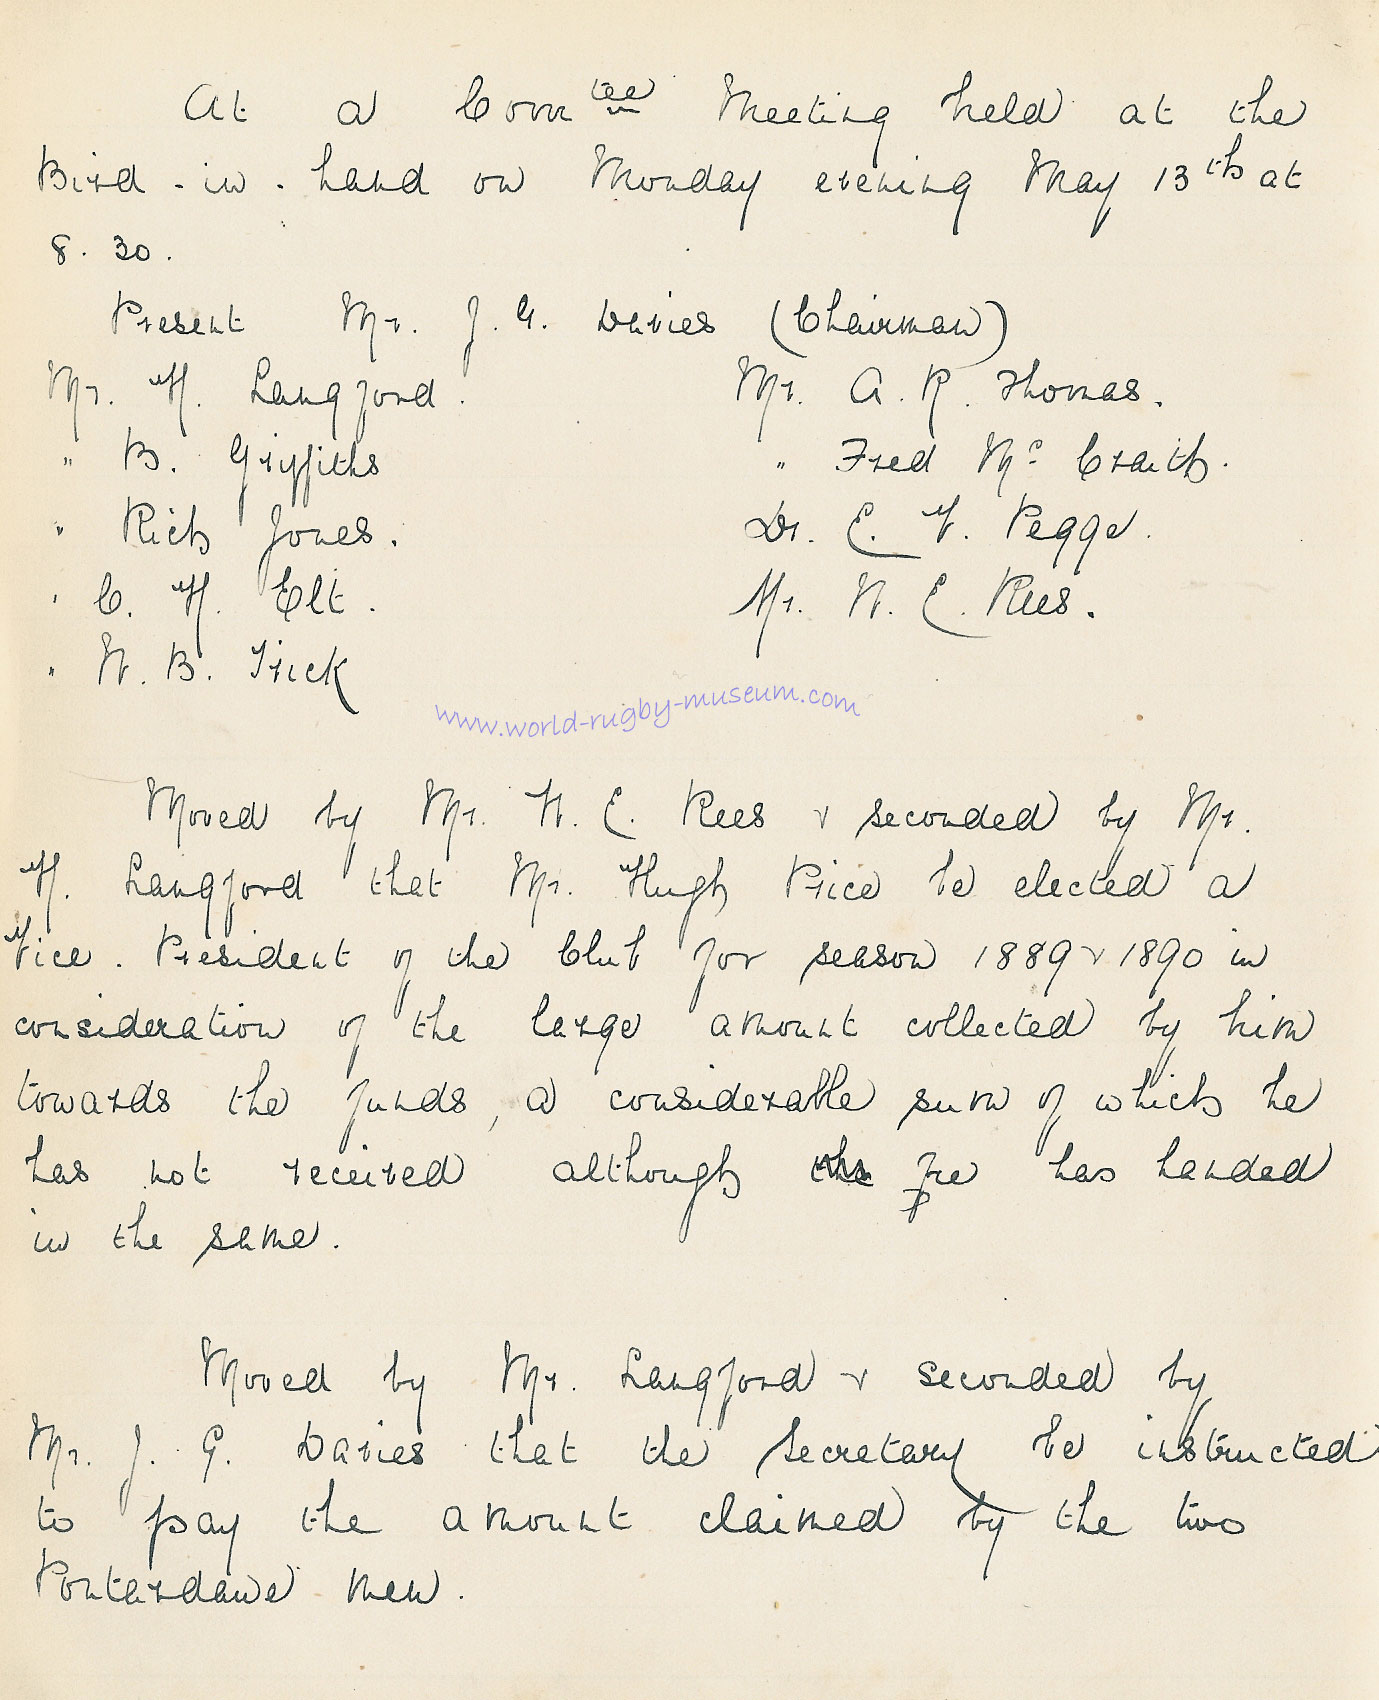 At a Com^tee Meeting held at the
Bird-in-hand on Monday evening May 13th at
8.30.
Present Mr. J. G. Davies (Chairman)
Mr. H. Langford. Mr. A. R. Thomas.
" B. Griffiths " Fred Mc Craith.
" Rich Jones. Dr. E. V. Pegge.
" C. H. Elt. Mr. W. E. Rees.
" W. B. Trick
www.world-rugby-museum.com
Moved by Mr. W. E. Rees & seconded by Mr.
H. Langford that Mr. Hugh Price be elected a
Vice. President of the Club for season 1889 & 1890 in
consideration of the large amount collected by him
towards the funds, a considerable sum of which he
has not received although he has handed
in the same.
Moved by Mr. Langford & seconded by
Mr. J. G. Davies that the secretary be instructed
to pay the amount claimed by the two
Pontardawe men.